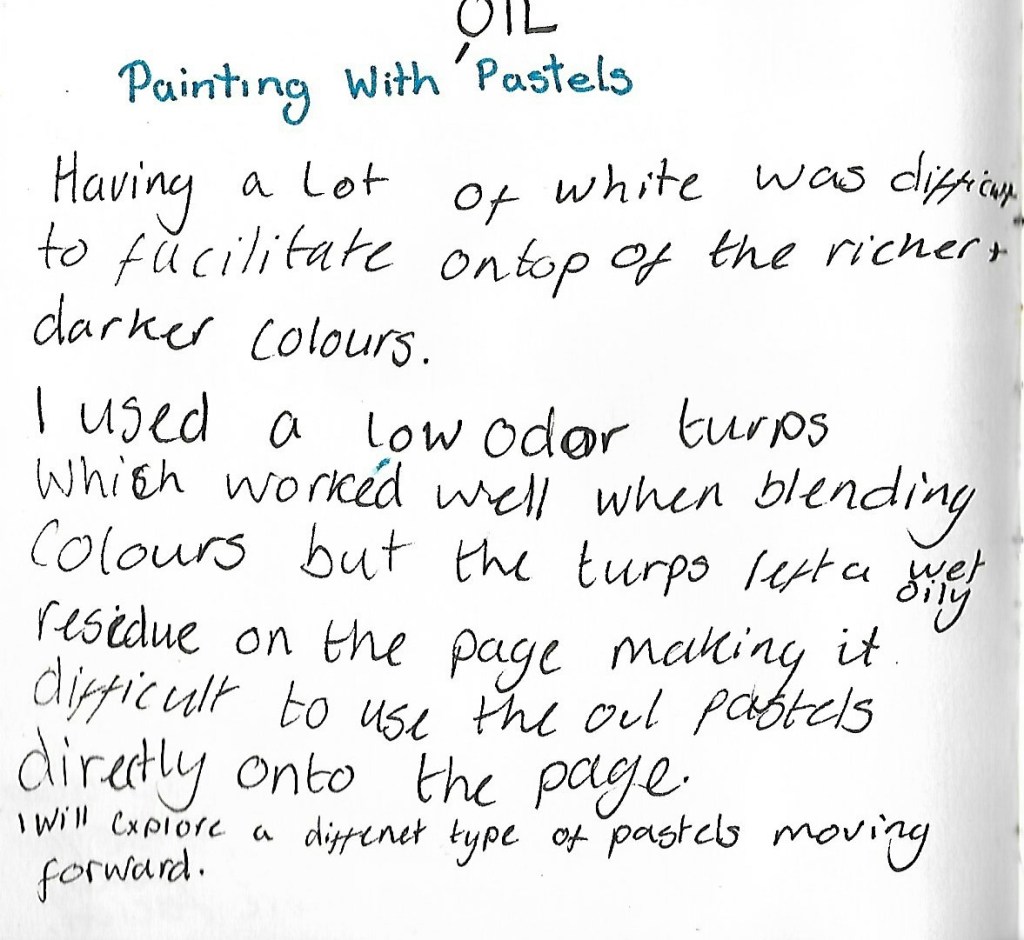 OIL
Painting With Pastels
Having a Lot of white was difficult
to facilitate ontop of the richer +
darker colours.
I used a low odor turps
Which worked well when blending
Colours but the turps left a wet
oily
residue on the page making it
difficult to use the oil pastels
directly onto the page.
I Will explore a diffenet type of pastels moving
forward.